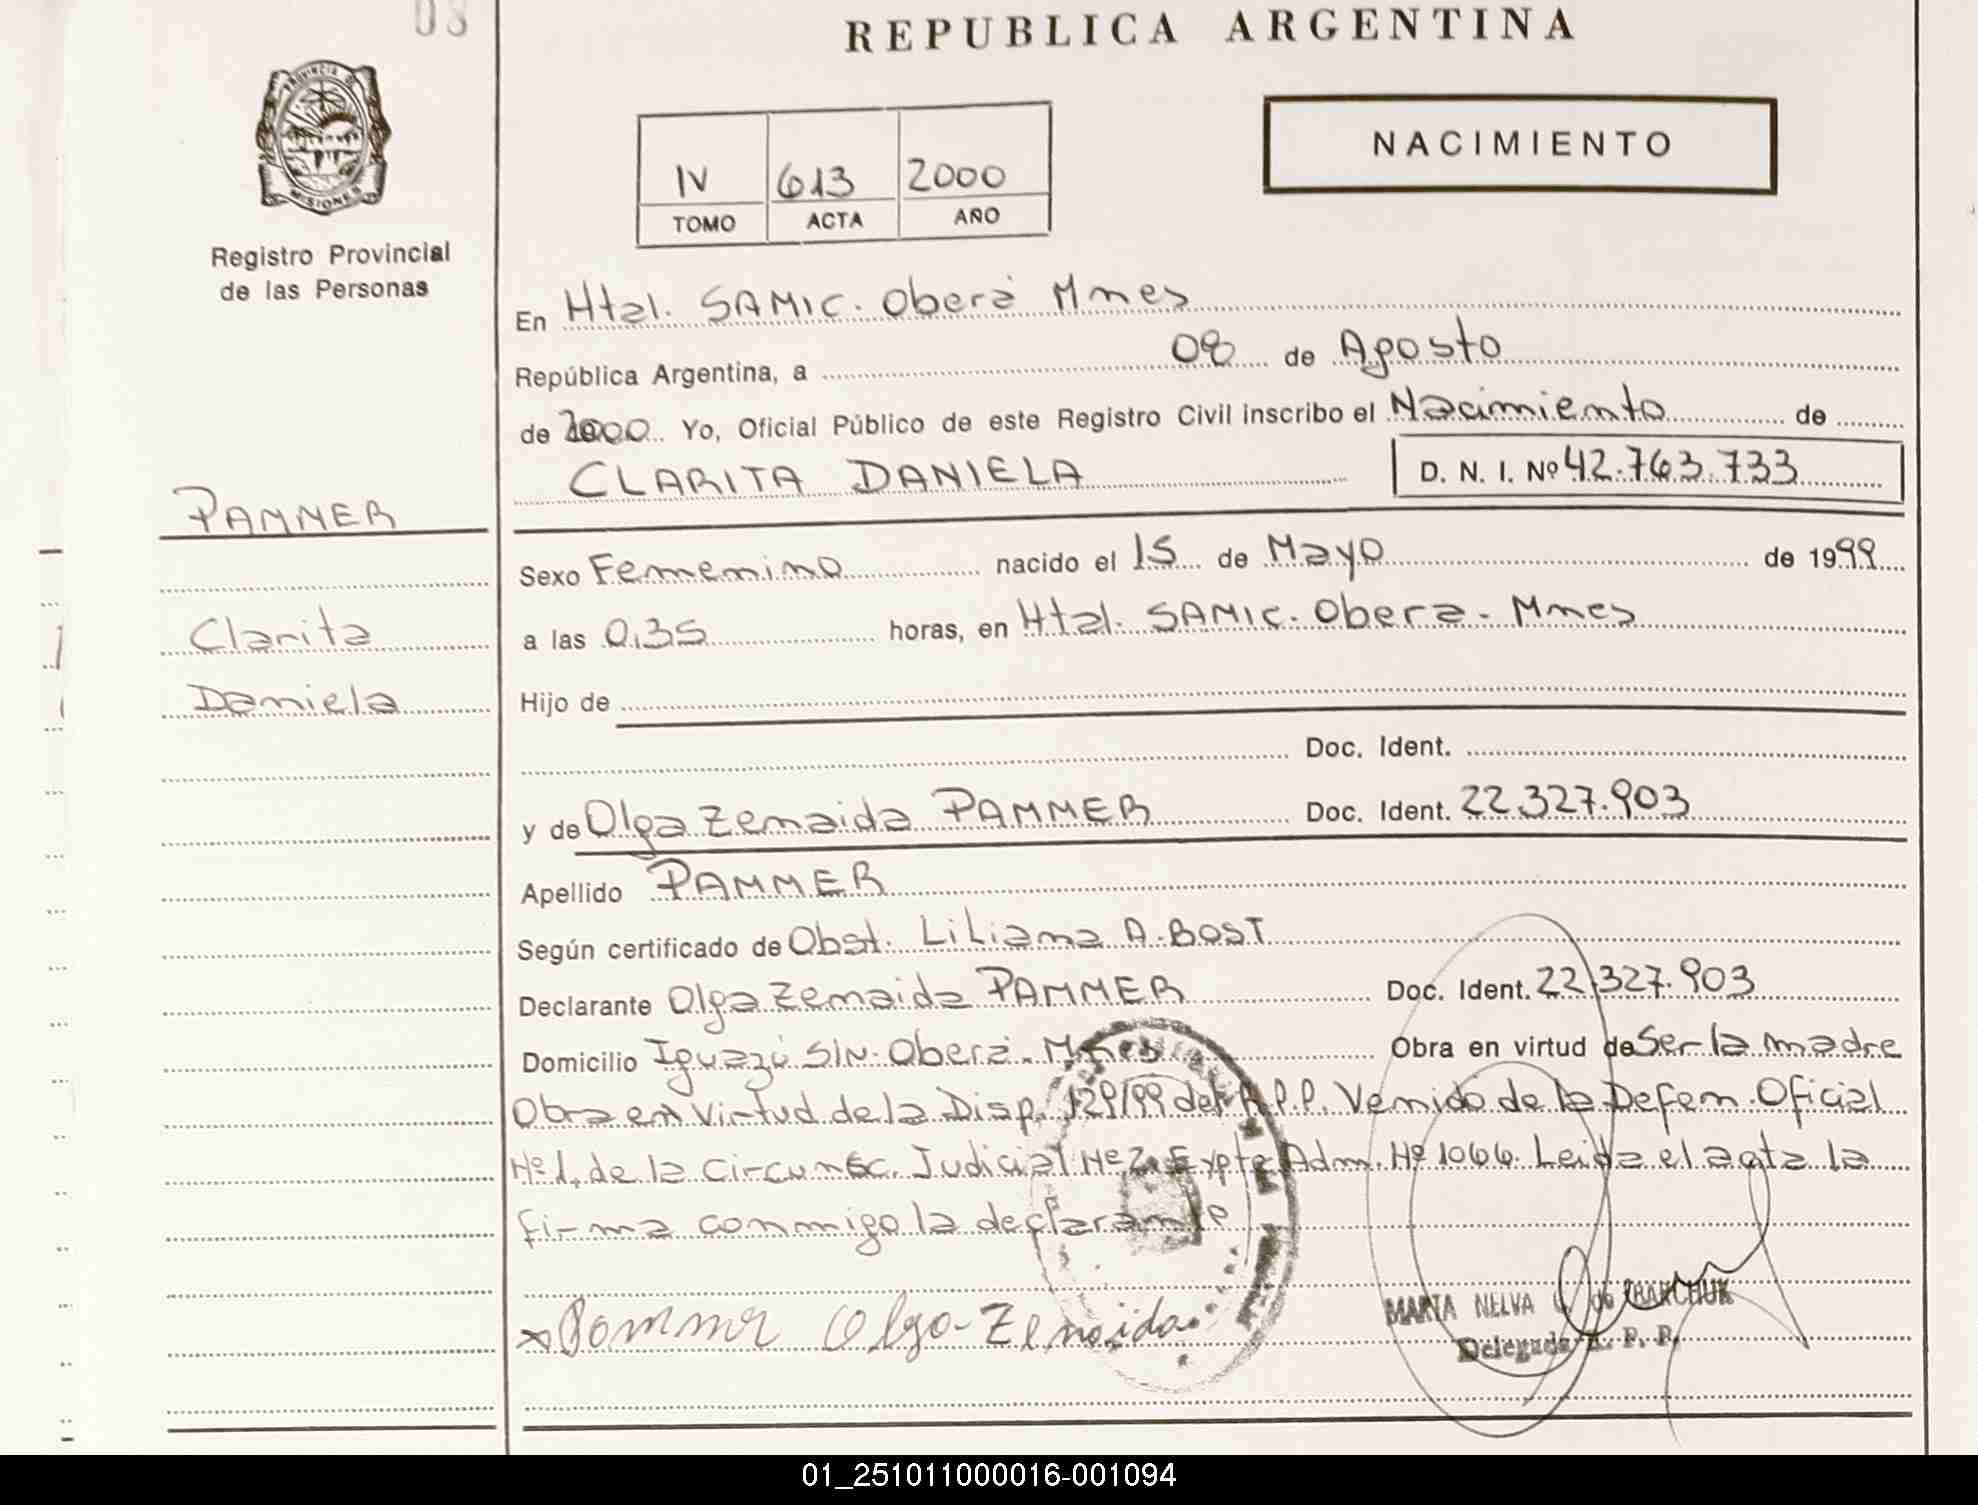 03
REPUBLICA ARGENTINA
PROVINCIA DE
MISIONES
NACIMIENTO
IV 613 2000
TOMO ACTA AÑO
Registro Provincial
de las Personas
En Htal. SAMIC. Oberá Mnes
República Argentina, a 08 de Agosto
de 2000 Yo, Oficial Público de este Registro Civil inscribo el Nacimiento de
CLARITA DANIELA D. N. I. Nº 42.763.733
PAMMER
Sexo Femenino nacido el 15 de Mayo de 1999
Clarita
a las 0.35 horas, en Htal. SAMIC. Obera - Mnes
Daniela
Hijo de
Doc. Ident.
y de Olga Zenaida PAMMER Doc. Ident. 22.327.903
Apellido PAMMER
Según certificado de Obst. Liliana A. BOST
Declarante Olga Zenaida PAMMER Doc. Ident. 22.327.903
Domicilio Iguazú S/N. Oberá. Mnes Obra en virtud de Ser la madre
Obra en Virtud de la Disp. 129/99 del R.P.P. Venido de la Defen. Oficial
Nº 1, de la Circunsc. Judicial Nº 2. Expte Adm. Nº 1066. Leida el acta la
firma conmigo la declarante
Pommer Olga Zenaida
MARTA NELVA de
Delegada R. P. P.
01_251011000016-001094